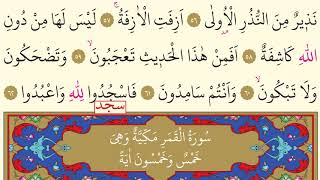 نَذِيرٌ مِنَ النُّذُرِ الْأُولٰى ﴿٥٦﴾ اَزِفَتِ الْاٰزِفَةُ ﴿٥٧﴾ لَيْسَ لَهَا مِنْ دُونِ
اللّٰهِ كَاشِفَةٌ ﴿٥٨﴾ اَفَمِنْ هٰذَا الْحَدِيثِ تَعْجَبُونَ ﴿٥٩﴾ وَتَضْحَكُونَ
وَلَا تَبْكُونَ ﴿٦٠﴾ وَاَنْتُمْ سَامِدُونَ ﴿٦١﴾ فَاسْجُدُوا لِلّٰهِ وَاعْبُدُوا ﴿٦٢﴾
سجد
سُورَةُ الْقَمَرِ مَكِّيَّةٌ وَهِيَ
خَمْسٌ وَخَمْسُونَ اٰيَةً